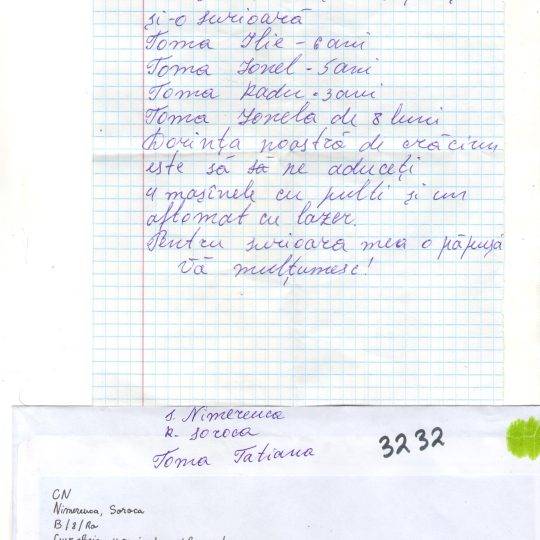 și-o surioară
Toma Ilie - 6 ani
Toma Ionel - 5 ani
Toma Radu - 3 ani
Toma Ionela de 8 luni
Dorința noastră de crăciun
este să să ne aduceți
4 mașinele cu pulti și un
aftomat cu lazer.
Pentru surioara mea o păpușă
Vă mulțumesc!
s. Nimereuca
R. Soroca
Toma Tatiana
3232
CN
Nimereuca, Soroca
B/8/Ro